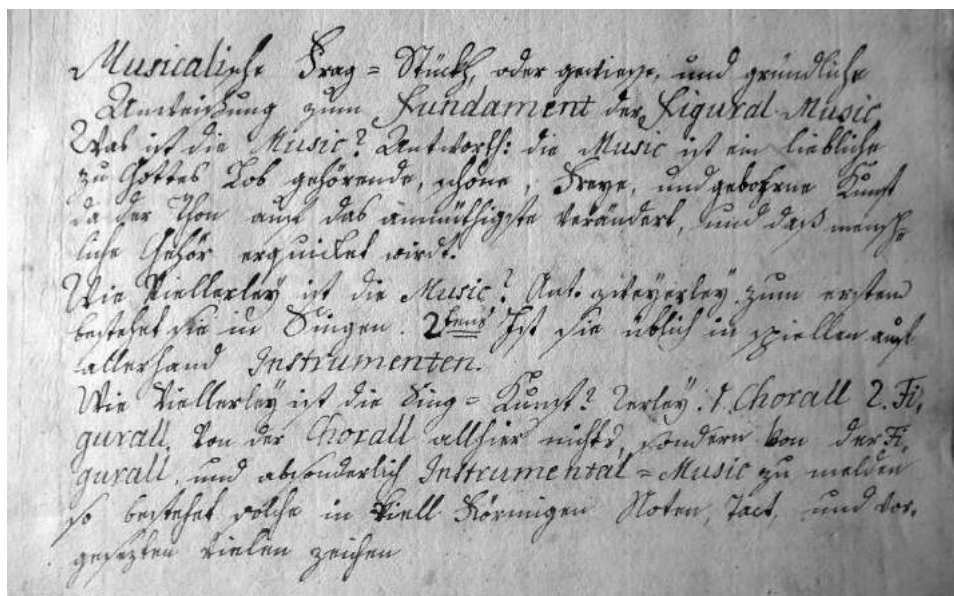 Musicalische Frag = Stückh, oder gewiesse, und gründliche
Anweisung zum Fundament der Figural Music
Was ist die Music? Antworth: die Music ist ein liebliche
zu Gottes Lob gehörende, schöne, Freye, und gebohrne Kunst
da der Thon auf das anmüthigste verändert, und daß mensch=
liche Gehör erquicket wirdt.
Wie Viellerley ist die Music? Ant. zweyerley zum ersten
bestehet sie in Singen. 2tens Ist sie üblich in spiellen auf
allerhand Instrumenten.
Wie Viellerley ist die Sing = Kunst? 2erley: 1 Chorall 2. Fi,
gurall, Von der Chorall allhier nichts, sondern von der Fi,
gurall, und absonderlich Instrumental = Music zu melden
so bestehet solche in Viell Förmigen Noten, Tact, und vor,
gesezten Vielen zeichen